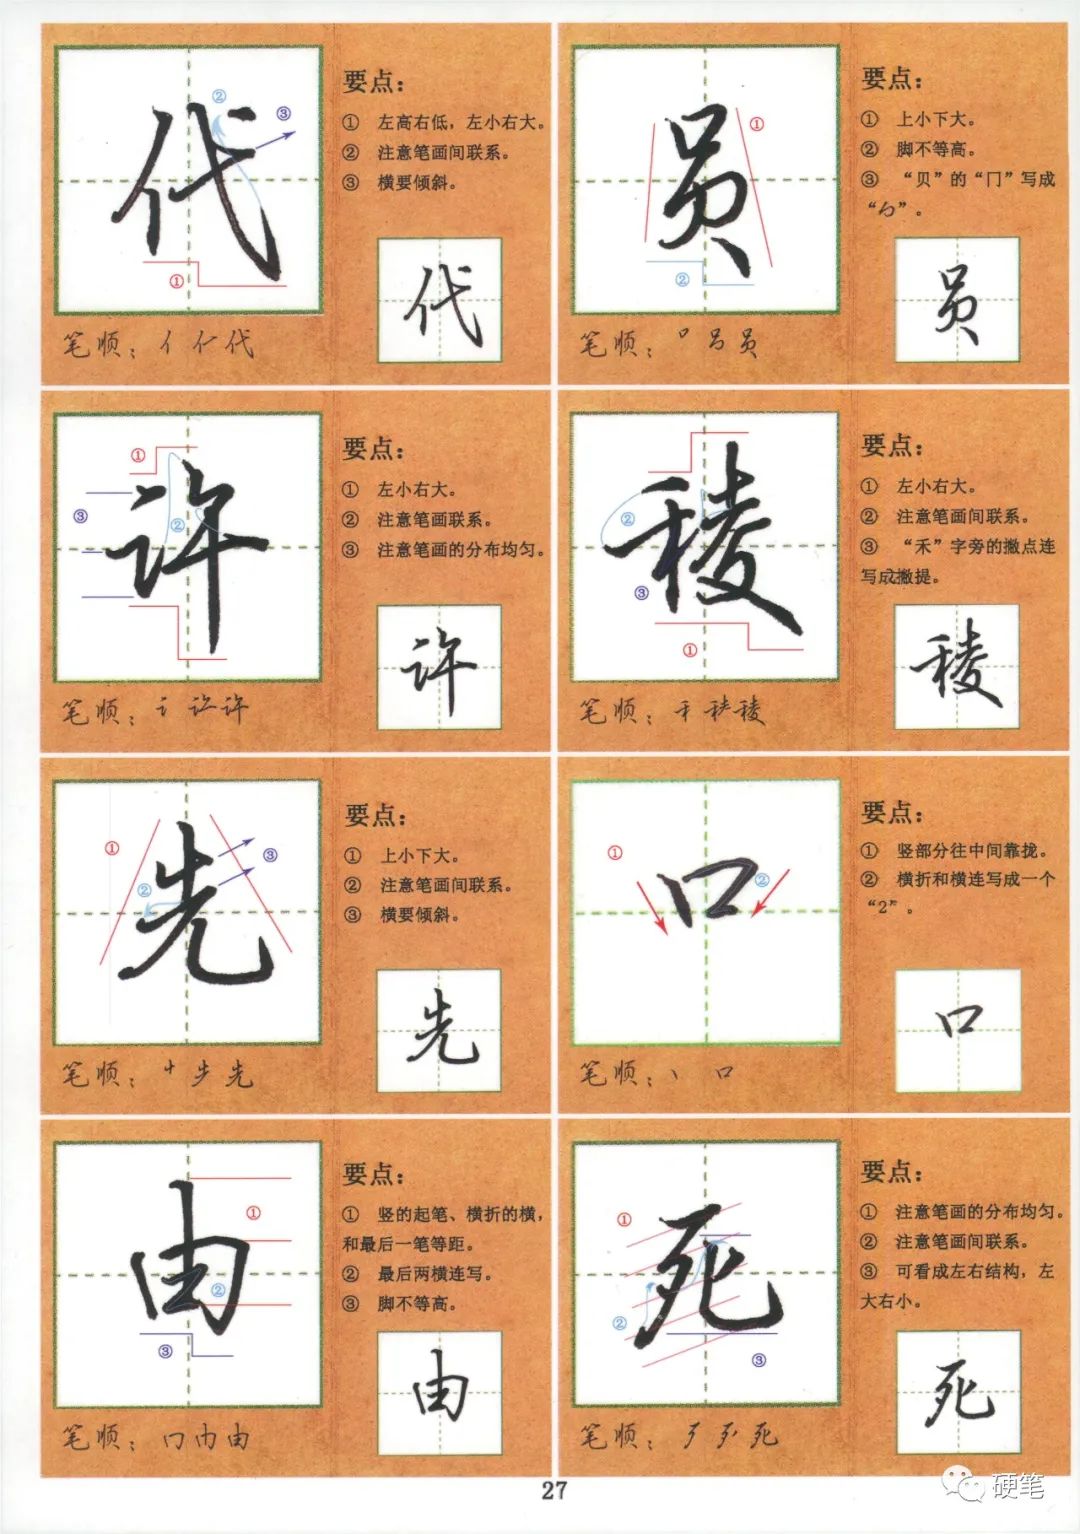 代
要点：
① 左高右低，左小右大。
② 注意笔画间联系。
③ 横要倾斜。
②
③
①
代
笔顺：亻 代
员
要点：
① 上小下大。
② 脚不等高。
③ “贝”的“冂”写成
①
②
员
笔顺：口 吕 员
许
要点：
① 左小右大。
② 注意笔画联系。
③ 注意笔画的分布均匀。
①
③
②
许
笔顺：讠 许
稜
要点：
① 左小右大。
② 注意笔画间联系。
③ “禾”字旁的撇点连
写成撇提。
②
③
①
稜
笔顺：稜
先
要点：
① 上小下大。
② 注意笔画间联系。
③ 横要倾斜。
①
③
②
先
笔顺：先
口
要点：
① 竖部分往中间靠拢。
② 横折和横连写成一个
“2”。
①
②
口
笔顺：丶 口
由
要点：
① 竖的起笔、横折的横，
和最后一笔等距。
② 最后两横连写。
③ 脚不等高。
①
②
③
由
笔顺：由
死
要点：
① 注意笔画的分布均匀。
② 注意笔画间联系。
③ 可看成左右结构，左
大右小。
①
②
③
死
笔顺：歹 死
27
硬笔